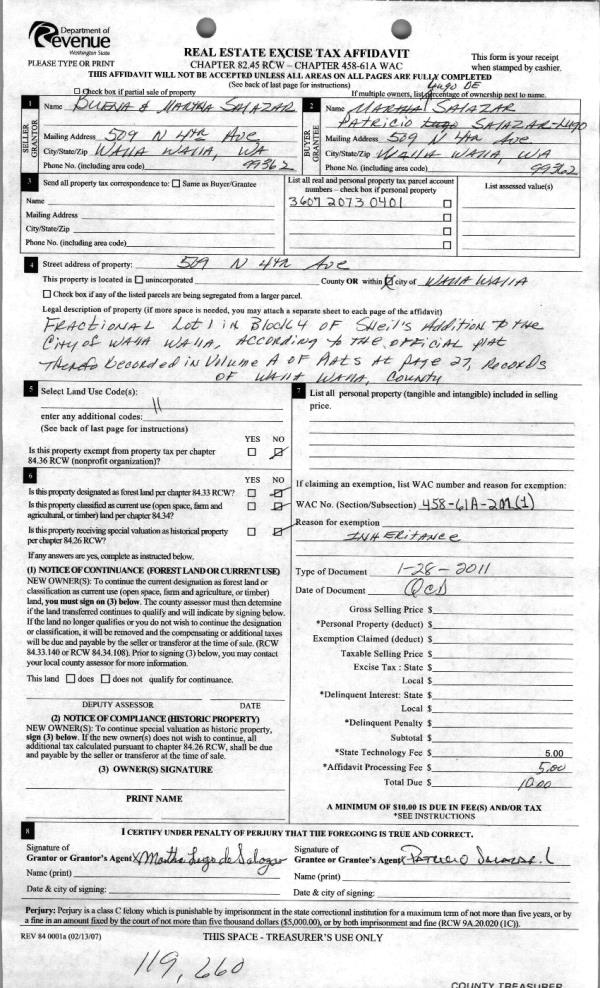 Department of
Revenue
Washington State
PLEASE TYPE OR PRINT
REAL ESTATE EXCISE TAX AFFIDAVIT
CHAPTER 82.45 RCW – CHAPTER 458-61A WAC
This form is your receipt
when stamped by cashier.
THIS AFFIDAVIT WILL NOT BE ACCEPTED UNLESS ALL AREAS ON ALL PAGES ARE FULLY COMPLETED
(See back of last page for instructions)
Check box if partial sale of property
If multiple owners, list percentage of ownership next to name.
1
SELLER
GRANTOR
Name BUENA & MARTHA SALAZAR
Mailing Address 509 N 4th Ave
City/State/Zip WALLA WALLA, WA
Phone No. (including area code) 99362
2
BUYER
GRANTEE
Lugo DE
Name MARTHA SALAZAR
PATRICIO Lugo SALAZAR-LUGO
Mailing Address 509 N 4th Ave
City/State/Zip WALLA WALLA, WA
Phone No. (including area code) 99362
3
Send all property tax correspondence to: Same as Buyer/Grantee
Name
Mailing Address
City/State/Zip
Phone No. (including area code)
List all real and personal property tax parcel account
numbers – check box if personal property
3607 2073 0401
List assessed value(s)
4
Street address of property: 509 N 4th Ave
This property is located in unincorporated County OR within city of WALLA WALLA
Check box if any of the listed parcels are being segregated from a larger parcel.
Legal description of property (if more space is needed, you may attach a separate sheet to each page of the affidavit)
FRACTIONAL Lot 1 in Block 4 OF Sheil's Addition to the
City of WALLA WALLA, ACCORDING to the official plat
thereof recorded in Volume A of Plats At page 27, Records
OF WALLA WALLA, COUNTY
5
Select Land Use Code(s):
11
enter any additional codes:
(See back of last page for instructions)
YES NO
Is this property exempt from property tax per chapter
84.36 RCW (nonprofit organization)?
6
YES NO
Is this property designated as forest land per chapter 84.33 RCW?
Is this property classified as current use (open space, farm and
agricultural, or timber) land per chapter 84.34?
Is this property receiving special valuation as historical property
per chapter 84.26 RCW?
If any answers are yes, complete as instructed below.
(1) NOTICE OF CONTINUANCE (FOREST LAND OR CURRENT USE)
NEW OWNER(S): To continue the current designation as forest land or
classification as current use (open space, farm and agriculture, or timber)
land, you must sign on (3) below. The county assessor must then determine
if the land transferred continues to qualify and will indicate by signing below.
If the land no longer qualifies or you do not wish to continue the designation
or classification, it will be removed and the compensating or additional taxes
will be due and payable by the seller or transferor at the time of sale. (RCW
84.33.140 or RCW 84.34.108). Prior to signing (3) below, you may contact
your local county assessor for more information.
This land does does not qualify for continuance.
DEPUTY ASSESSOR DATE
(2) NOTICE OF COMPLIANCE (HISTORIC PROPERTY)
NEW OWNER(S): To continue special valuation as historic property,
sign (3) below. If the new owner(s) does not wish to continue, all
additional tax calculated pursuant to chapter 84.26 RCW, shall be due
and payable by the seller or transferor at the time of sale.
(3) OWNER(S) SIGNATURE
PRINT NAME
7
List all personal property (tangible and intangible) included in selling
price.
If claiming an exemption, list WAC number and reason for exemption:
WAC No. (Section/Subsection) 458-61A-201(1)
Reason for exemption
INHERITANCE
Type of Document 1-28-2011
Date of Document QCD
Gross Selling Price $
*Personal Property (deduct) $
Exemption Claimed (deduct) $
Taxable Selling Price $
Excise Tax : State $
Local $
*Delinquent Interest: State $
Local $
*Delinquent Penalty $
Subtotal $
*State Technology Fee $ 5.00
*Affidavit Processing Fee $ 5.00
Total Due $ 10.00
A MINIMUM OF $10.00 IS DUE IN FEE(S) AND/OR TAX
*SEE INSTRUCTIONS
8
I CERTIFY UNDER PENALTY OF PERJURY THAT THE FOREGOING IS TRUE AND CORRECT.
Signature of
Grantor or Grantor's Agent X Martha Lugo de Salazar
Name (print)
Date & city of signing:
Signature of
Grantee or Grantee's Agent X Patricio Salazar L
Name (print)
Date & city of signing:
Perjury: Perjury is a class C felony which is punishable by imprisonment in the state correctional institution for a maximum term of not more than five years, or by
a fine in an amount fixed by the court of not more than five thousand dollars ($5,000.00), or by both imprisonment and fine (RCW 9A.20.020 (1C)).
REV 84 0001a (02/13/07)
THIS SPACE - TREASURER'S USE ONLY
119,660
COUNTY TREASURER